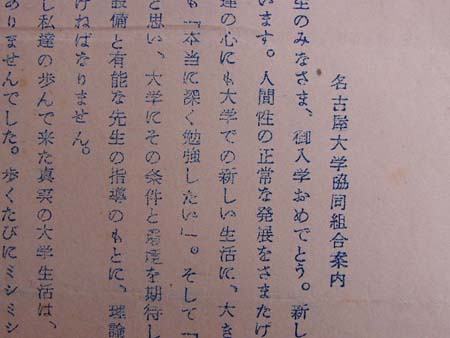 名古屋大学協同組合案内
生のみなさま、御入学おめでとう。新し
います。人間性の正常な発展をさまたげ
達の心にも大学での新しい生活に、大き
も「本当に深く勉強したい」。そして「
と思い、大学にその条件と環境を期待し
設備と有能な先生の指導のもとに、理論
けねばなりません。
し私達の歩んで来た真実の大学生活は、
ありませんでした。歩くたびにミシミシ